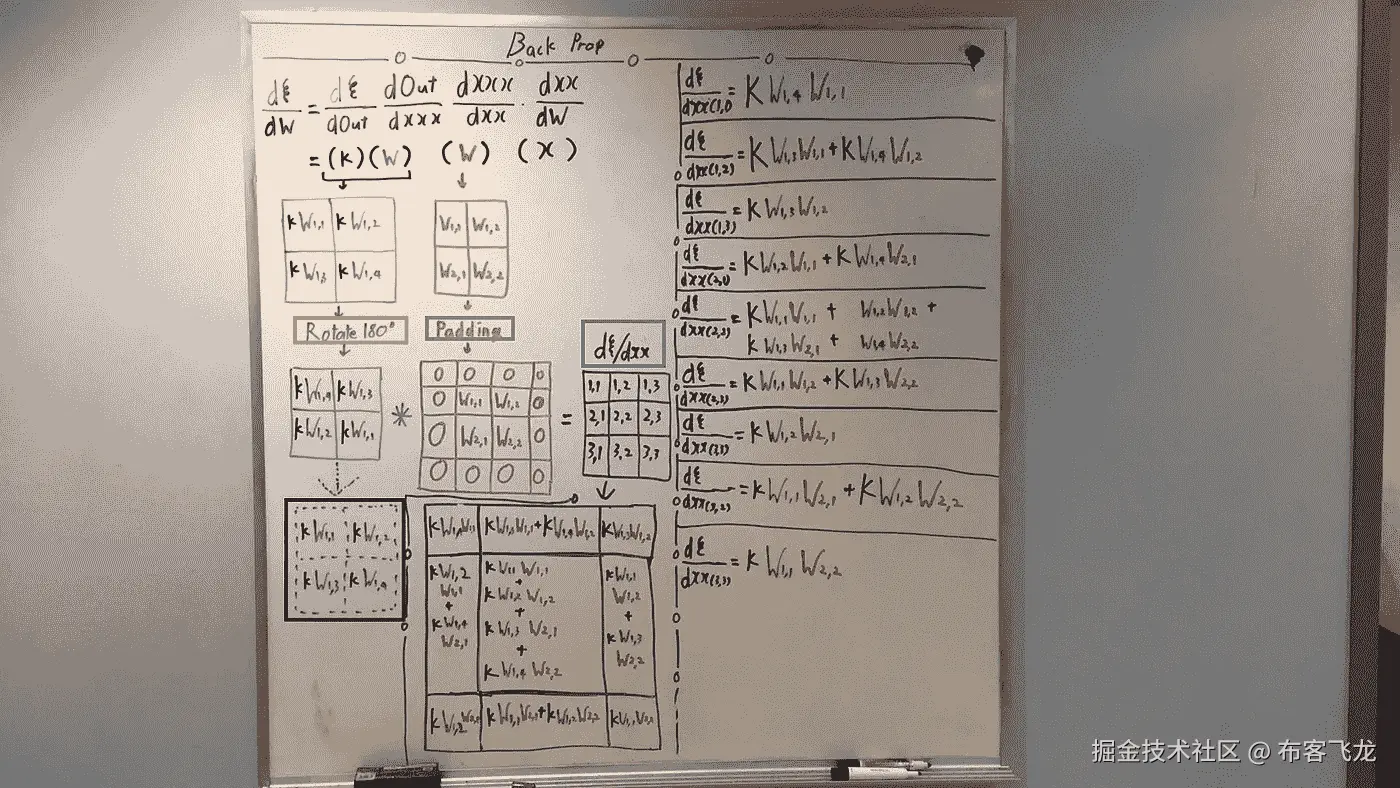 Back Prop
dξ/dW = dξ/dOut dOut/dxxx dxxx/dxx · dxx/dW
= (K)(W) (W) (X)
KW1,1 KW1,2
KW1,3 KW1,4
W1,1 W1,2
W2,1 W2,2
Rotate 180°
Padding
KW1,4 KW1,3
KW1,2 KW1,1
*
0 0 0 0
0 W1,1 W1,2 0
0 W2,1 W2,2 0
0 0 0 0
=
dξ/dxx
1,1 1,2 1,3
2,1 2,2 2,3
3,1 3,2 3,3
KW1,1 KW1,2
KW1,3 KW1,4
KW1,4W1,1 KW1,3W1,1+KW1,4W1,2 KW1,3W1,2
KW1,2 W1,1 + KW1,4 W2,1
KW1,1 W1,1 + KW1,2 W1,2 + KW1,3 W2,1 + KW1,4 W2,2
KW1,1 W1,2 + KW1,3 W2,2
KW1,2W2,1 KW1,1W2,1+KW1,2W2,2 KW1,1W2,2
dξ/dxx(1,1) = KW1,4W1,1
dξ/dxx(1,2) = KW1,3W1,1+KW1,4W1,2
dξ/dxx(1,3) = KW1,3W1,2
dξ/dxx(2,1) = KW1,2W1,1+KW1,4W2,1
dξ/dxx(2,2) = KW1,1W1,1 + W1,2W1,2 +
KW1,3W2,1 + W1,4W2,2
dξ/dxx(2,3) = KW1,1W1,2+KW1,3W2,2
dξ/dxx(3,1) = KW1,2W2,1
dξ/dxx(3,2) = KW1,1W2,1+KW1,2W2,2
dξ/dxx(3,3) = KW1,1W2,2
掘金技术社区 @ 布客飞龙